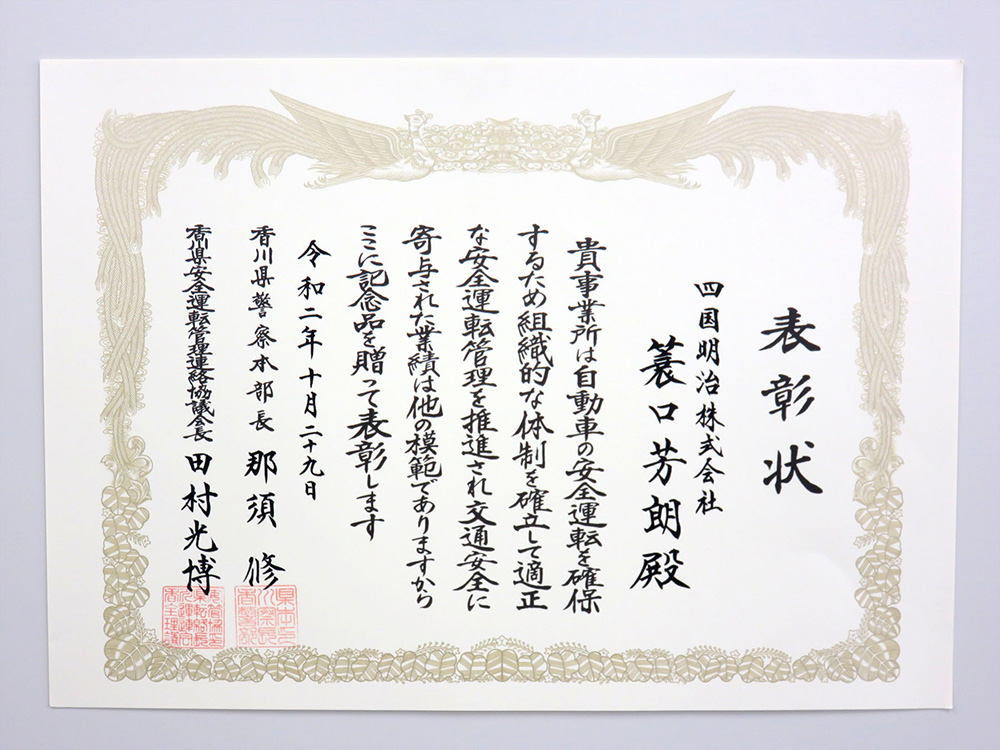 表彰状
四国明治株式会社
蓑口芳朗殿
貴事業所は自動車の安全運転を確保
するため組織的な体制を確立して適正
な安全運転管理を推進され交通安全に
寄与された業績は他の模範でありますから
ここに記念品を贈って表彰します
令和二年十月二十九日
香川県警察本部長 那須 修
香川県安全運転管理連絡協議会長 田村光博